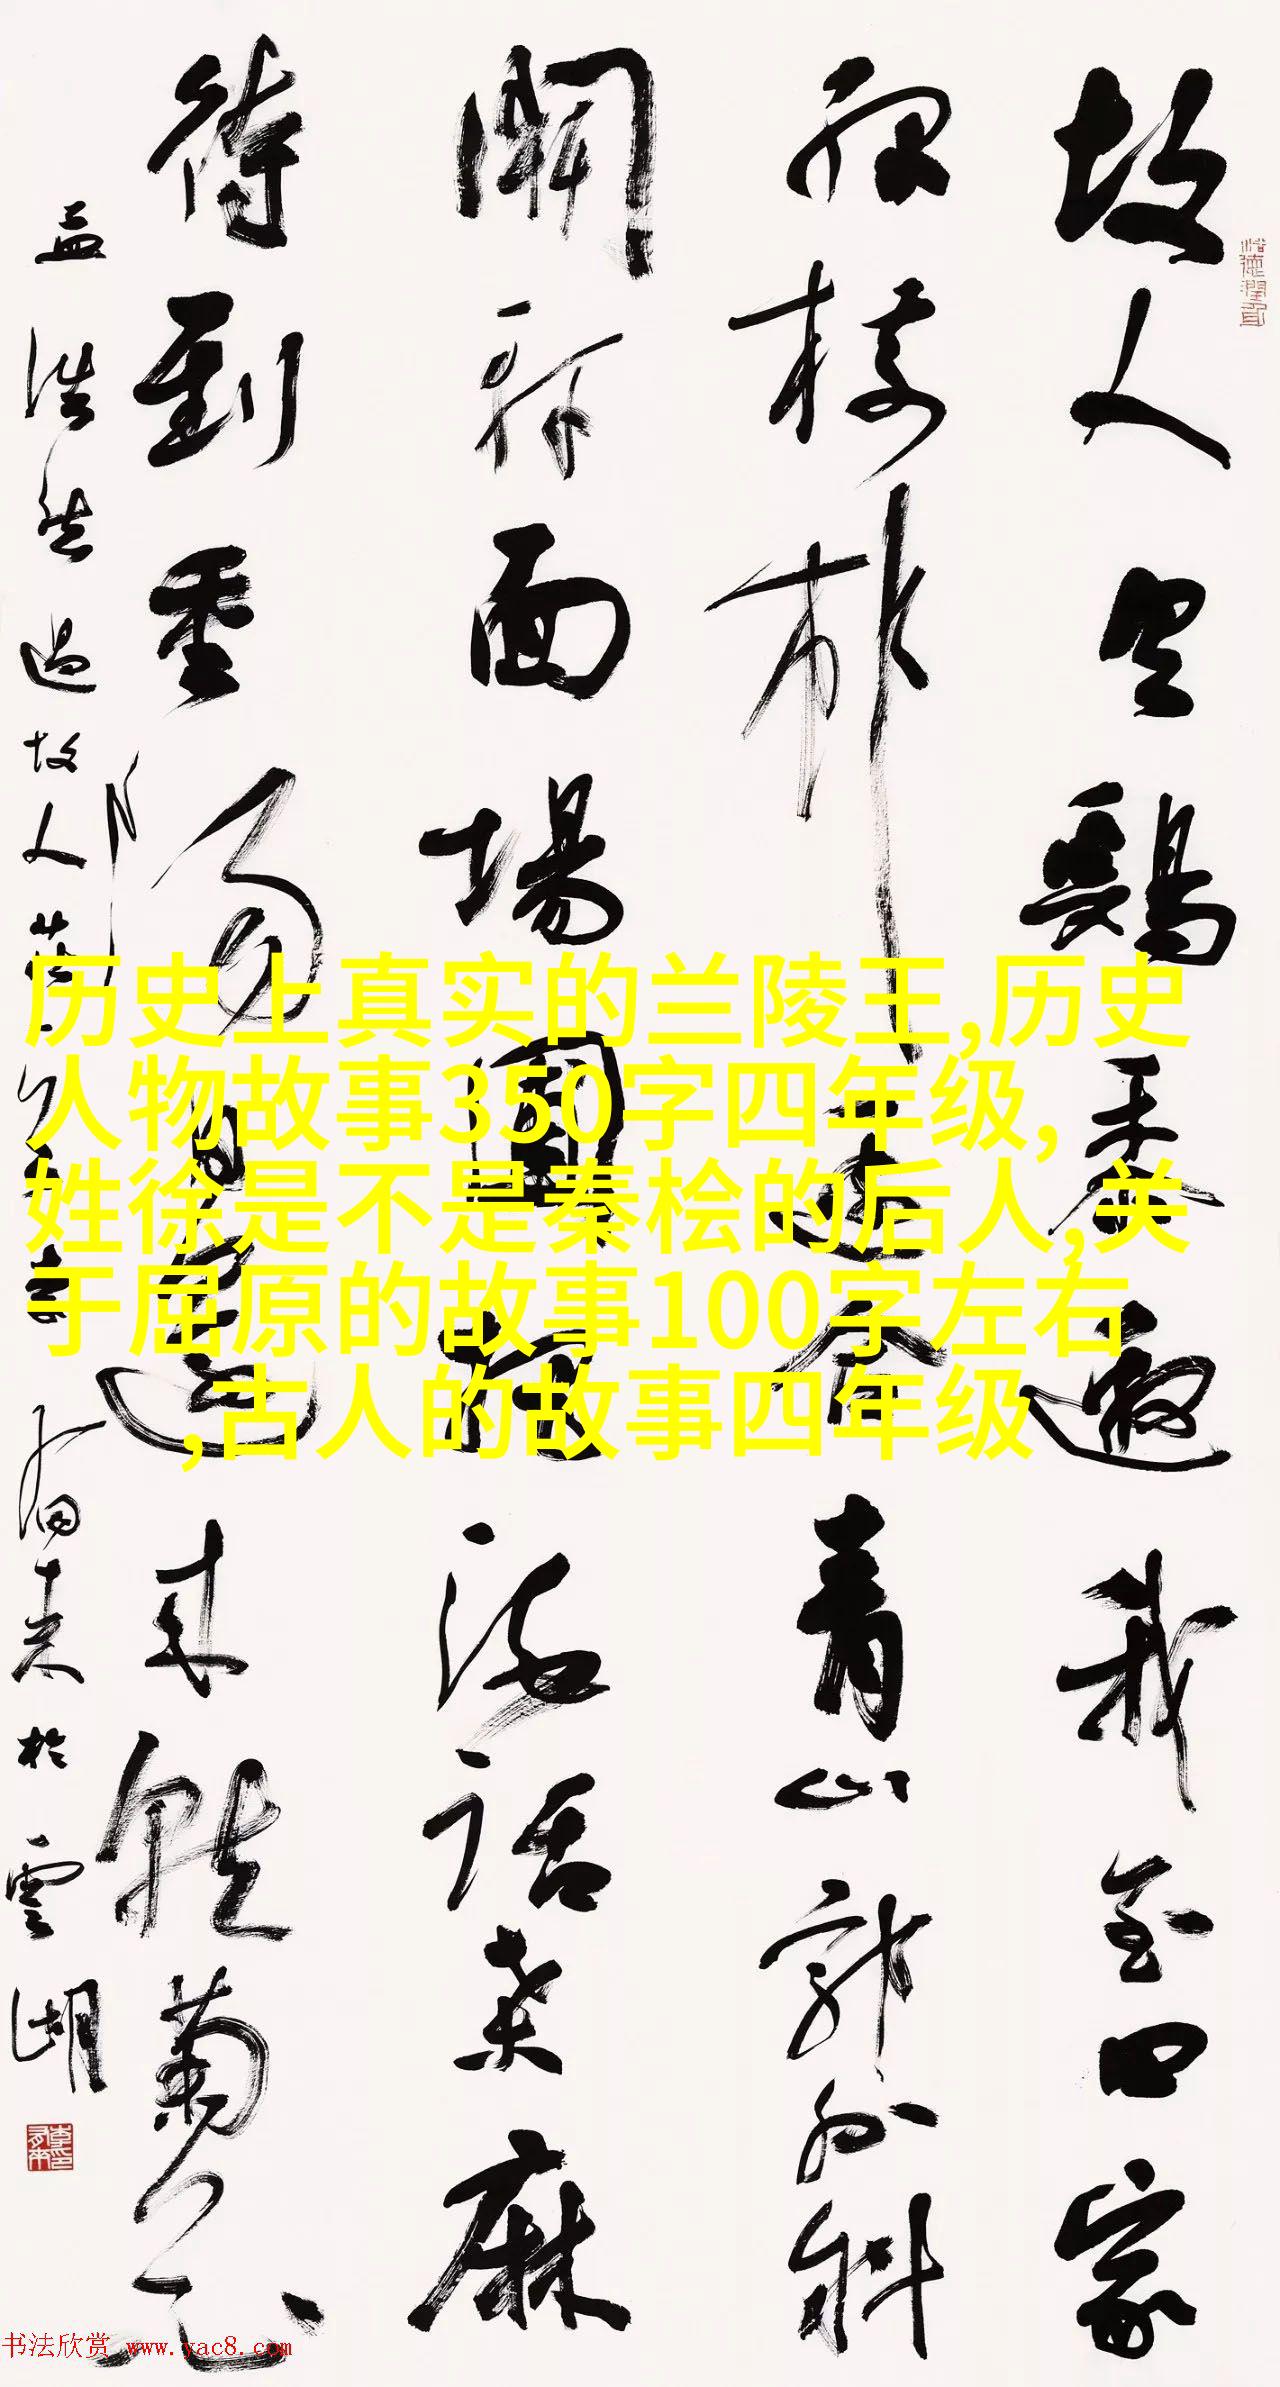 故人具鷄黍邀我至田家
緑樹村邊合青山郭外斜
開軒面場圃把酒話桑麻
待到重陽日還来就菊花
孟浩然過故人莊
有来於雲湖
历史上真实的兰陵王,历史
人物故事350字四年级,
姓徐是不是秦桧的后人,关
于屈原的故事100字左右
,古人的故事四年级
书法欣赏 www.yac8.com